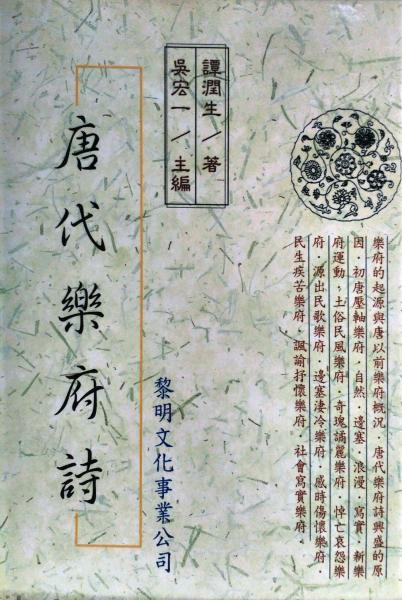 樂府的起源與唐以前樂府概況　唐代樂府詩興盛的原
因．初唐壓軸樂府．自然．邊塞．浪漫．寫實　新樂
府運動．土俗民風樂府．奇瑰譎麗樂府　悼亡哀怨樂
府．源出民歌樂府．邊塞淒冷樂府．感時傷懷樂府．
民生疾苦樂府．諷諭抒懷樂府．社會寫實樂府．
譚潤生／著
吳宏一／主編
黎明文化事業公司
唐代樂府詩